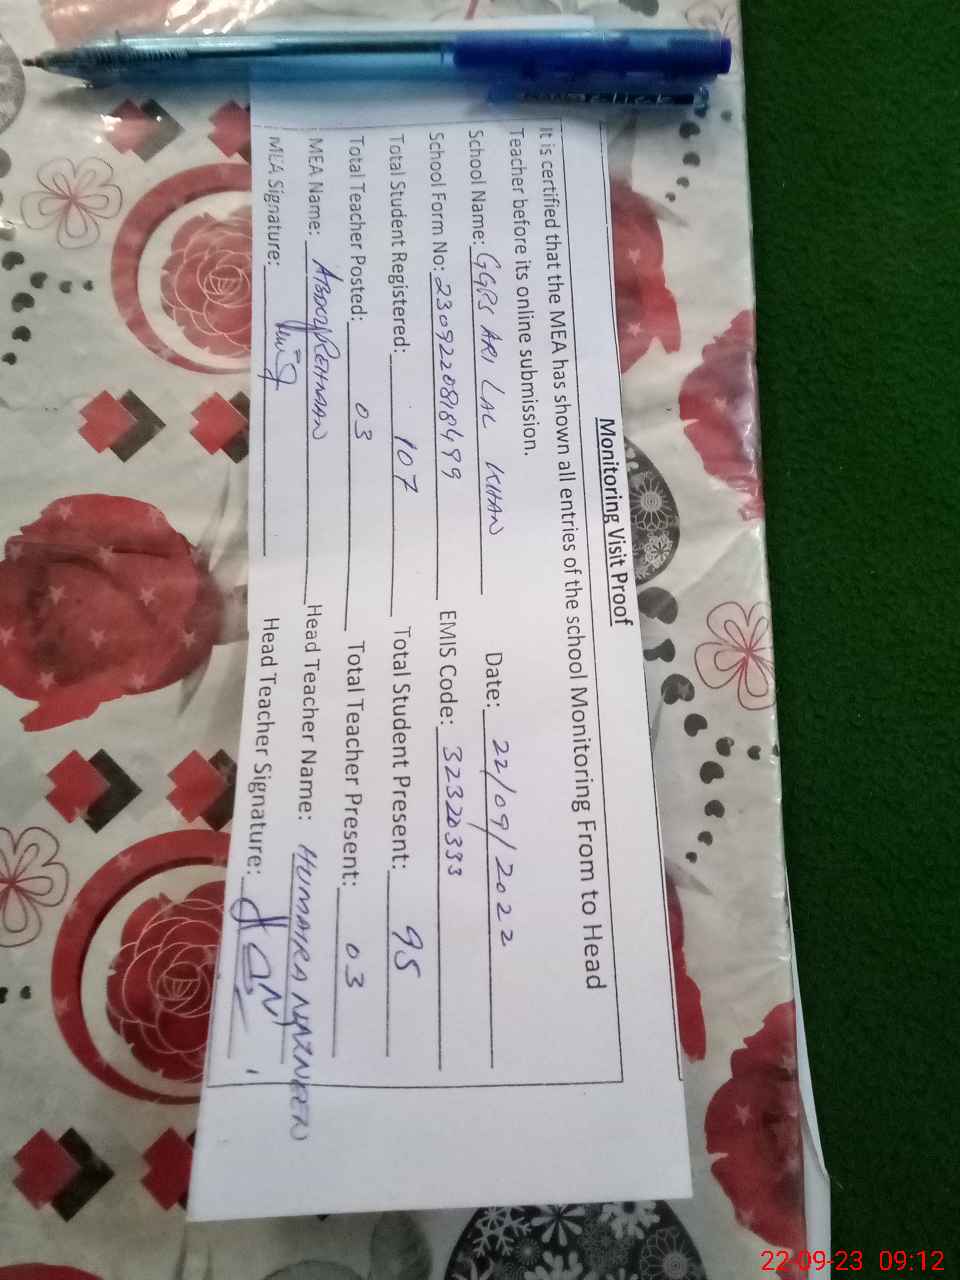 Monitoring Visit Proof
It is certified that the MEA has shown all entries of the school Monitoring From to Head
Teacher before its online submission.
School Name: GGPS ARI LAL KHAN Date: 22/09/2022
School Form No: 2309220818499 EMIS Code: 32320393
Total Student Registered: 107 Total Student Present: 95
Total Teacher Posted: 03 Total Teacher Present: 03
MEA Name: ABDUL REHMAN Head Teacher Name: HUMAIRA
MEA Signature: Head Teacher Signature:
click
22-09-23 09:12